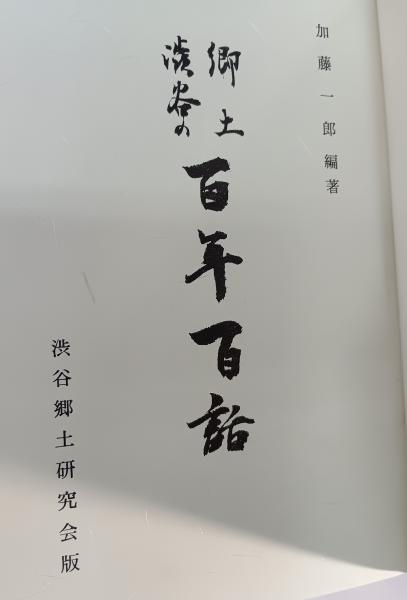 加藤一郎編著
郷土
渋谷の
百年百話
渋谷郷土研究会版